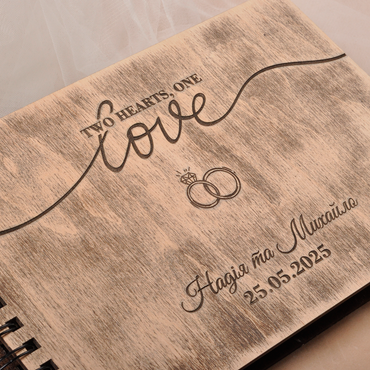 TWO HEARTS, ONE
love
Надія та Михайло
25.05.2025